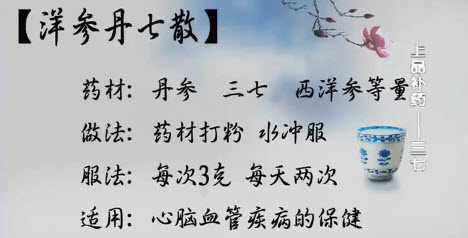 【洋参丹七散】
药材：丹参 三七 西洋参等量
做法：药材打粉 水冲服
服法：每次3克 每天两次
适用：心脑血管疾病的保健
上品补药——三七